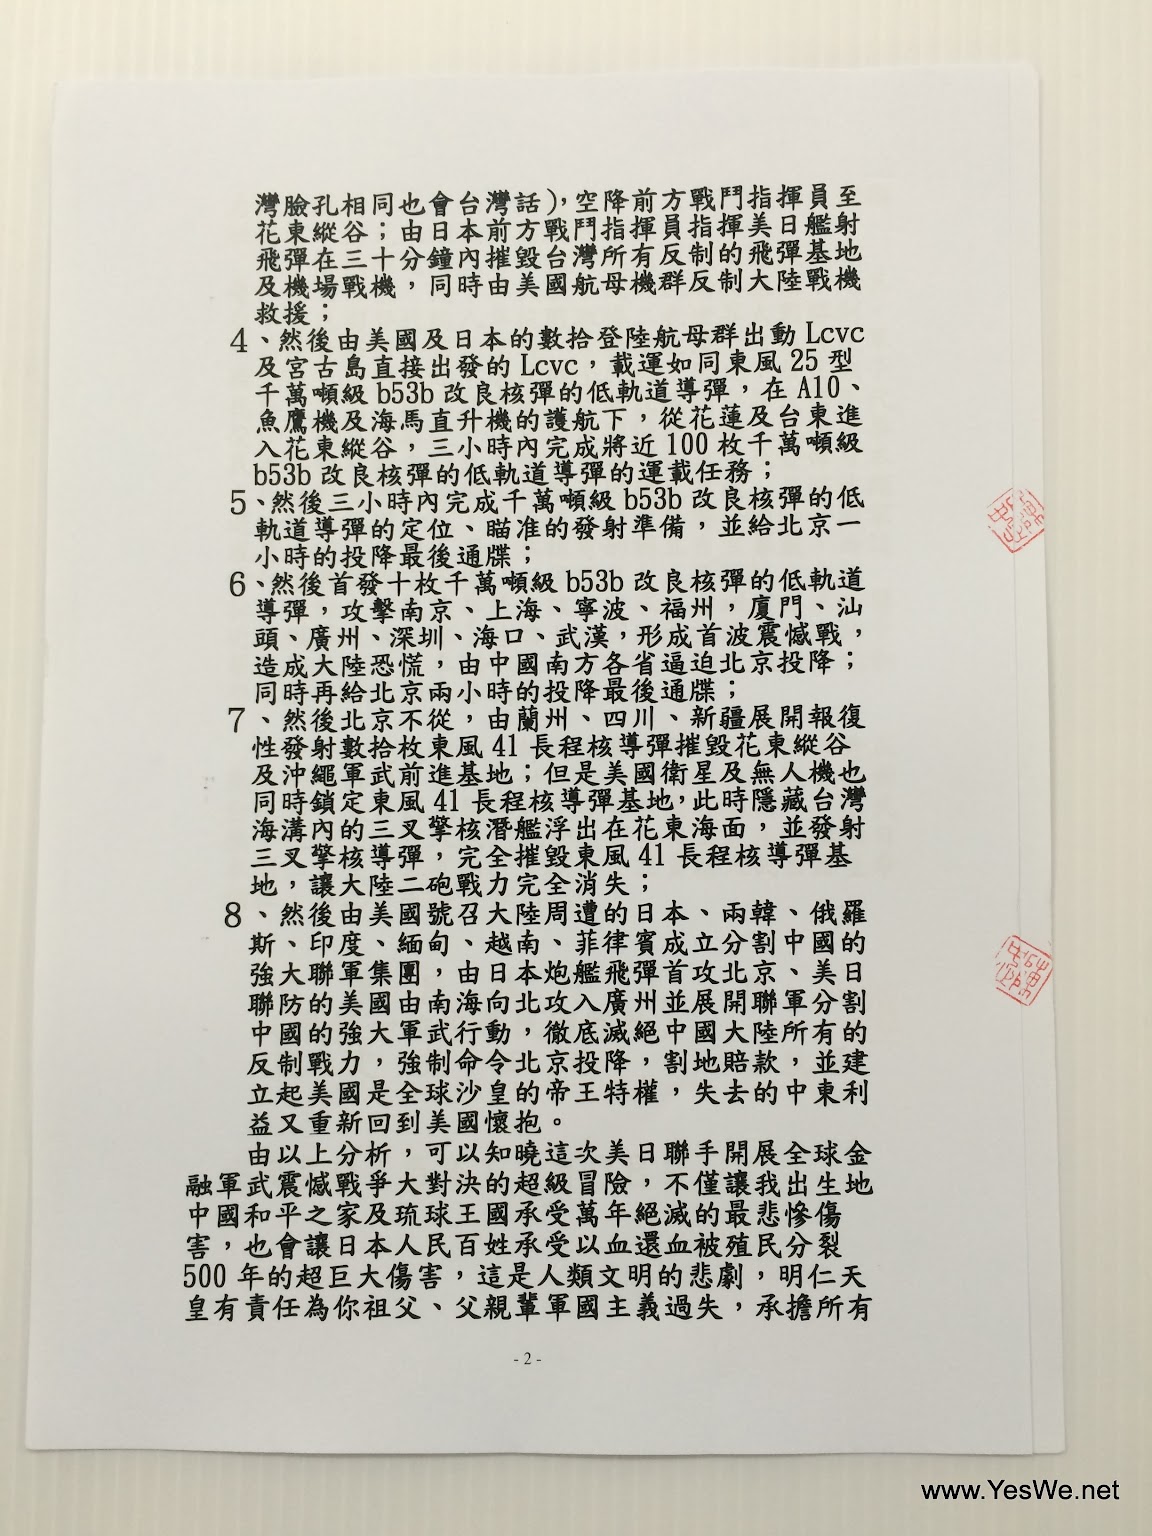 灣臉孔相同也會台灣話），空降前方戰鬥指揮員至
花東縱谷；由日本前方戰鬥指揮員指揮美日艦射
飛彈在三十分鐘內摧毀台灣所有反制的飛彈基地
及機場戰機，同時由美國航母機群反制大陸戰機
救援；
4、然後由美國及日本的數拾登陸航母群出動 Lcvc
及宮古島直接出發的 Lcvc，載運如同東風 25 型
千萬噸級 b53b 改良核彈的低軌道導彈，在 A10、
魚鷹機及海馬直升機的護航下，從花蓮及台東進
入花東縱谷，三小時內完成將近 100 枚千萬噸級
b53b 改良核彈的低軌道導彈的運載任務；
5、然後三小時內完成千萬噸級 b53b 改良核彈的低
軌道導彈的定位、瞄准的發射準備，並給北京一
小時的投降最後通牒；
6、然後首發十枚千萬噸級 b53b 改良核彈的低軌道
導彈，攻擊南京、上海、寧波、福州，廈門、汕
頭、廣州、深圳、海口、武漢，形成首波震憾戰，
造成大陸恐慌，由中國南方各省逼迫北京投降；
同時再給北京兩小時的投降最後通牒；
7、然後北京不從，由蘭州、四川、新疆展開報復
性發射數拾枚東風 41 長程核導彈摧毀花東縱谷
及沖繩軍武前進基地；但是美國衛星及無人機也
同時鎖定東風 41 長程核導彈基地，此時隱藏台灣
海溝內的三叉擎核潛艦浮出在花東海面，並發射
三叉擎核導彈，完全摧毀東風 41 長程核導彈基
地，讓大陸二砲戰力完全消失；
8、然後由美國號召大陸周遭的日本、兩韓、俄羅
斯、印度、緬甸、越南、菲律賓成立分割中國的
強大聯軍集團，由日本炮艦飛彈首攻北京、美日
聯防的美國由南海向北攻入廣州並展開聯軍分割
中國的強大軍武行動，徹底滅絕中國大陸所有的
反制戰力，強制命令北京投降，割地賠款，並建
立起美國是全球沙皇的帝王特權，失去的中東利
益又重新回到美國懷抱。
由以上分析，可以知曉這次美日聯手開展全球金
融軍武震憾戰爭大對決的超級冒險，不僅讓我出生地
中國和平之家及琉球王國承受萬年絕滅的最悲慘傷
害，也會讓日本人民百姓承受以血還血被殖民分裂
500 年的超巨大傷害，這是人類文明的悲劇，明仁天
皇有責任為你祖父、父親輩軍國主義過失，承擔所有
- 2 -
www.YesWe.net